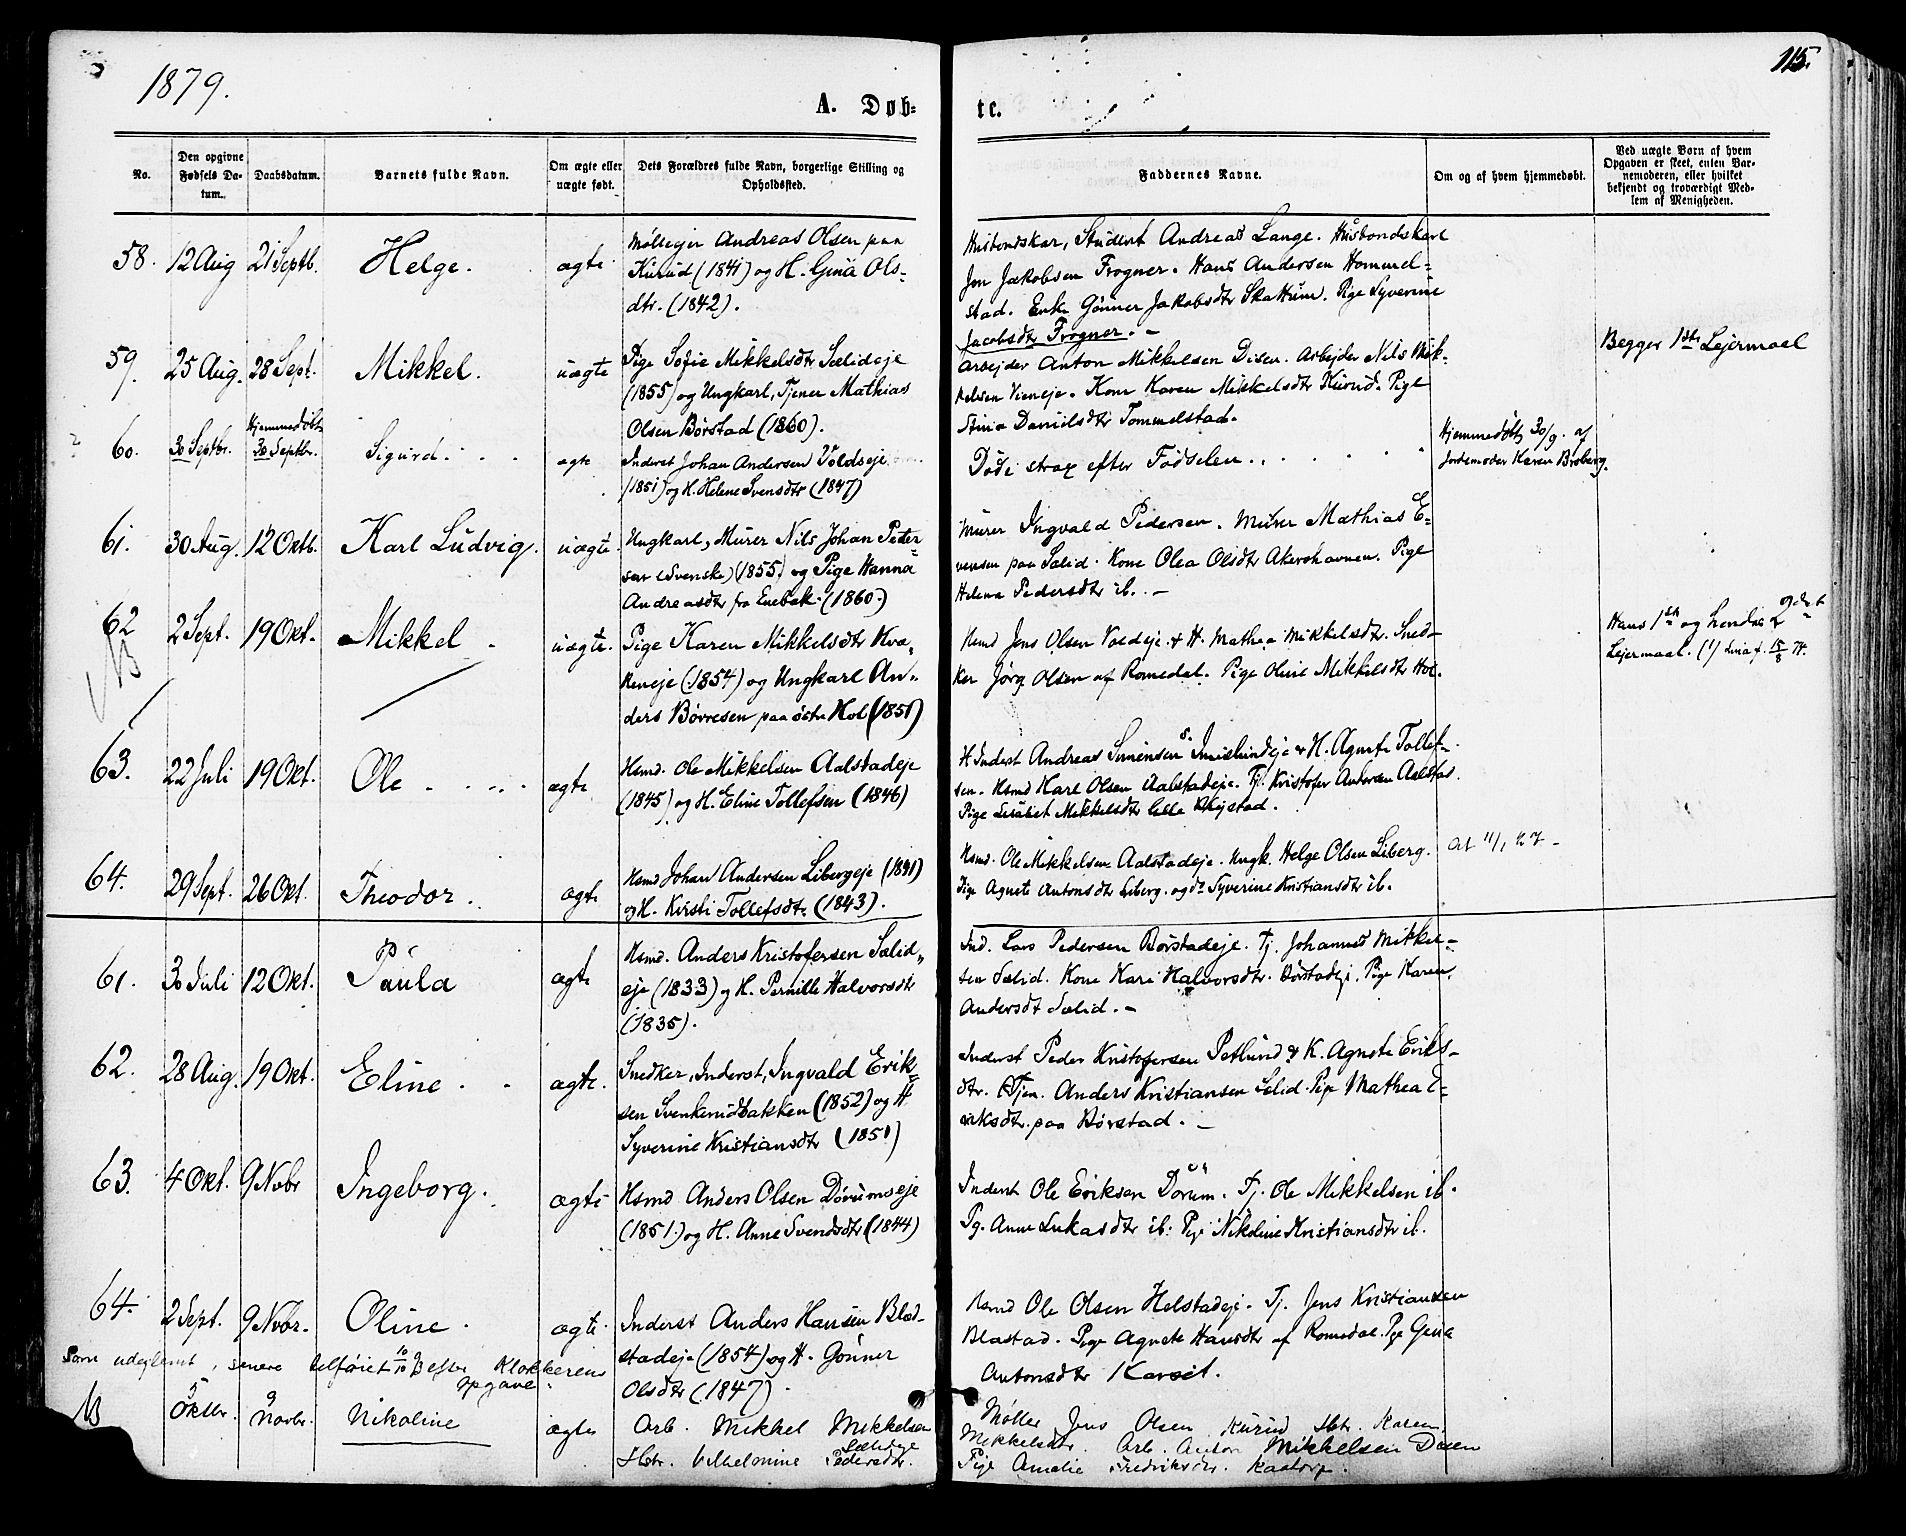 1879.
115.
A. Døb-
te.
No.
Den opgivne Fødsels Da-tum.
Daabsdatum.
Barnets fulde Navn.
Om ægte eller uægte født.
Dets Forældres fulde Navn, borgerlige Stilling og Opholdssted.
Faddernes Navne.
Om og af hvem hjemmedøbt.
Ved uægte Børn af hvem Opgaven er skeet, enten Bar-nemoderen, eller hvilket bekjendt og troværdigt Med-lem af Menigheden.
58. 12 Aug 21 Septb. Helge. ægte
Mølleejer Andreas Olsen paa
Kurud (1841) og H. Gina Ols-
dtr. (1842).
Husbondskar, Student Andreas Lange. Husbondskarl
Jon Jakobsen Frogner. Hans Andersen Hommel-
stad. Enke Gunner Jakobsdtr Skattum. Pige Syverine
Jacobsdtr Frogner. -
59. 25 Aug. 28 Sept. Mikkel. uægte
Pige Sofie Mikkelsdtr Sælideje
(1855) og Ungkarl, Tjener Mathias
Olsen Børstad (1860).
Arbejder Anton Mikkelsen Disen. Arbejder Nils Mik-
kelsen Vieneje. Kone Karen Mikkelsdtr Kurud. Pige
Stina Danielsdtr Tommelstad.
Begges 1ste Lejermaal
60. 30 Septbr. Hjemmedøbt 30 Septbr. Sigurd. ægte
Inderst Johan Andersen Voldseje
(1851) og H. Helene Svensdtr (1847)
Døde strax efter Fødselen.
Hjemmedøbt 30/9. af
Jordemoder Karen Broberg.
61. 30 Aug. 12 Oktb. Karl Ludvig. uægte.
Ungkarl, Murer Nils Johan Peder-
sen (Svenske) (1855) og Pige Hanna
Andreasdtr fra Enebak. (1860.)
Murer Ingvald Pedersen. Murer Mathias E-
vensen paa Sælid. Kone Olea Olsdtr Akershavnen. Pige
Helena Pedersdtr ib. -
62 2 Sept. 19 Okt. Mikkel uægte.
NB
Pige Karen Mikkelsdtr Kva-
keneje (1854) og Ungkarl An-
ders Børresen paa østre Hol (1851)
Hsmd Jens Olsen Voldeje & H. Mathea Mikkelsdtr. Sned-
ker Jørg. Olsen af Romedal. Pige Oline Mikkelsdtr Hol.
Hans 1ste og hendes 2det
Lejermaal.
63. 22 Juli 19 Okt. Ole ægte
Hsmd. Ole Mikkelsen Aalstadeje
(1845) og H. Eline Tollefsen (1846)
H Inderst Andreas Simensen Imislundeje & H. Agnete Tollef-
sen. Hsmd Karl Olsen Aalstadeje. Tj. Kristofer Andersen Aalstad.
Pige Lisabet Mikkelsdtr lille Kjstad.
64. 29 Sept. 26 Okt. Theodor. ægte
Hsmd Johan Andersen Libergeje (1841)
og H. Kirsti Tollefsdtr. (1843).
Hsmd. Ole Mikkelsen Aalstadeje. Ungk. Helge Olsen Liberg.
Pige Agnete Antonsdtr Liberg. og do Syverine Kristiansdtr ib.
61. 30 Juli 12 Okt. Paula ægte
Hsmd. Anders Kristofersen Sælid-
eje (1833) og H. Pernille Halvorsdtr
(1835).
Ind. Lars Pedersen Børstadeje. Tj. Johannes Mikkel-
sen Sælid. Kone Kari Halvorsdtr. Børstadeje. Pige Karen
Andersdt Sælid. -
62. 28 Aug. 19 Okt. Eline ægte.
Snedker, Inderst, Ingvald Erik-
sen Svenkerudbakken (1852) og H
Syverine Kristiansdtr (1851)
Inderst Peder Kristofersen Petlund & K. Agnete Eriks-
dtr. Tjen. Anders Kristiansen Sælid. Pige Mathea E-
riksdtr. paa Børstad. -
63. 4 Okt. 9 Novbr Ingeborg. ægte
Hsmd Anders Olsen Dørumseje
(1851.) og H. Anne Svendsdtr (1844)
Inderst Ole Eriksen Dørum. Tj. Ole Mikkelsen ib.
Pg. Anne Lukasdtr ib. Pige Nikoline Kristiansdtr ib.
64. 2 Sept. 9 Novbr. Oline. ægte.
Inderst Anders Hansen Blæs-
stadeje (1854) og H. Gunner
Olsdtr (1847).
Hsmd Ole Olsen Helstadeje. Tj. Jens Kristiansen
Blæstad. Pige Agnete Hansdtr af Romedal. Pge Gina
Antonsdtr Karset.
Som udeglemt, senere tilføiet efter Klokkerens Opgave.
NB 5 Oktbr. 9 Novbr. Nikoline ægte
Arb. Mikkel Mikkelsen
Sælideje
Hstr. Vilhelmine Pedersdtr.
Møller Jens Olsen Kurud Hstr. Karen
Mikkelsdtr. Arb. Anton Mikkelsen Disen
Pige Amalie Fredriksdtr. Kaatorp.